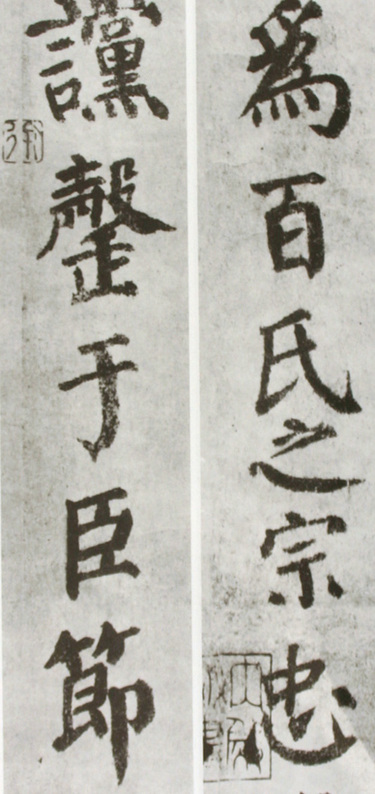 爲百氏之宗忠
讜罄于臣節